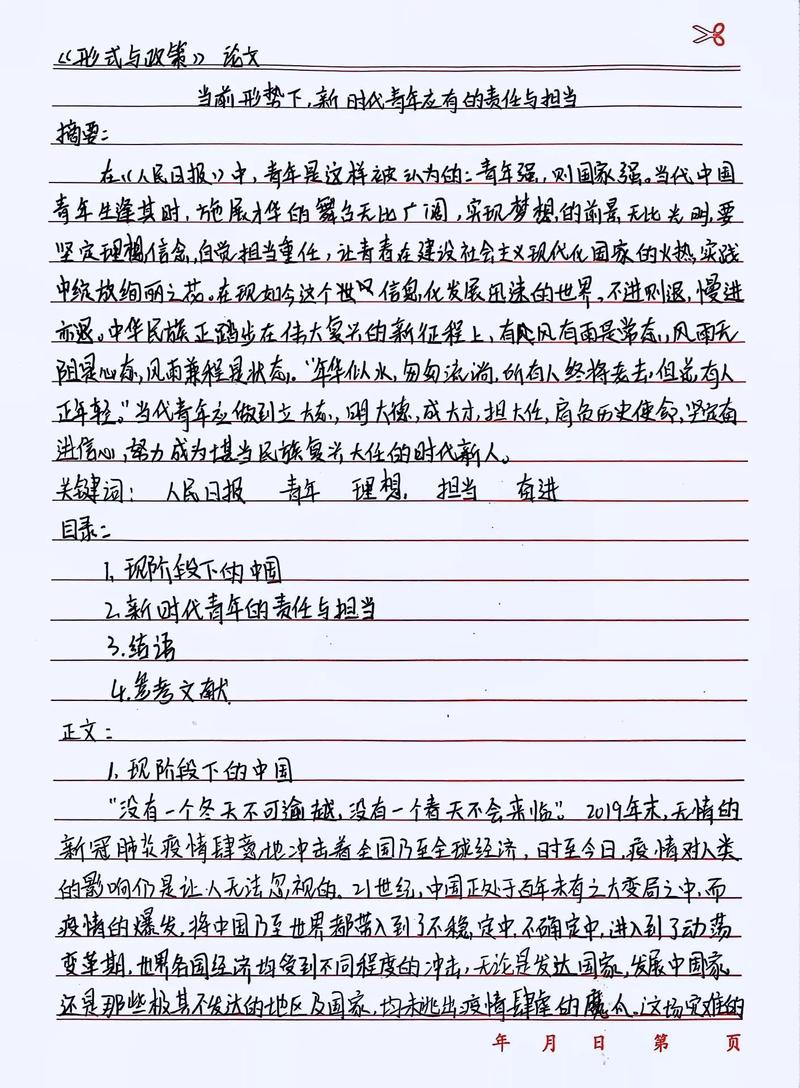 《形式与政策》 论文
当前形势下,新时代青年应有的责任与担当
摘要:
在《人民日报》中,青年是这样被认为的:青年强,则国家强。当代中国
青年生逢其时,施展才华的舞台无比广阔,实现梦想的前景无比光明,要
坚定理想信念,自觉担当重任,让青春在建设社会主义现代化国家的火热实践
中绽放绚丽之花。在现如今这个信息化发展迅速的世界,不进则退,慢进
亦退。中华民族正踏步在伟大复兴的新征程上,有风有雨是常态,风雨无
阻是心态,风雨兼程是状态。“年华似水,匆匆流淌,所有人终将老去,但总有人
正年轻。”当代青年应做到立大志,明大德,成大才,担大任,肩负历史使命,坚定奋
进信心,努力成为堪当民族复兴大任的时代新人。
关键词: 人民日报 青年 理想 担当 奋进
目录:
1.现阶段下的中国
2.新时代青年的责任与担当
3.结语
4.参考文献
正文:
1.现阶段下的中国
“没有一个冬天不可逾越,没有一个春天不会来临”。2019年末,无情的
新冠肺炎疫情肆意地冲击着全国乃至全球经济,时至今日,疫情对人类
的影响仍是让人无法忽视的。21世纪,中国正处于百年未有之大变局之中,而
疫情的爆发,将中国乃至世界都带入到了不稳定中,不确定中,进入到了动荡
变革期,世界各国经济均受到不同程度的冲击,无论是发达国家,发展中国家
还是那些极其不发达的地区及国家,均未逃出疫情肆虐的魔爪。这场灾难的
年 月 日 第 页